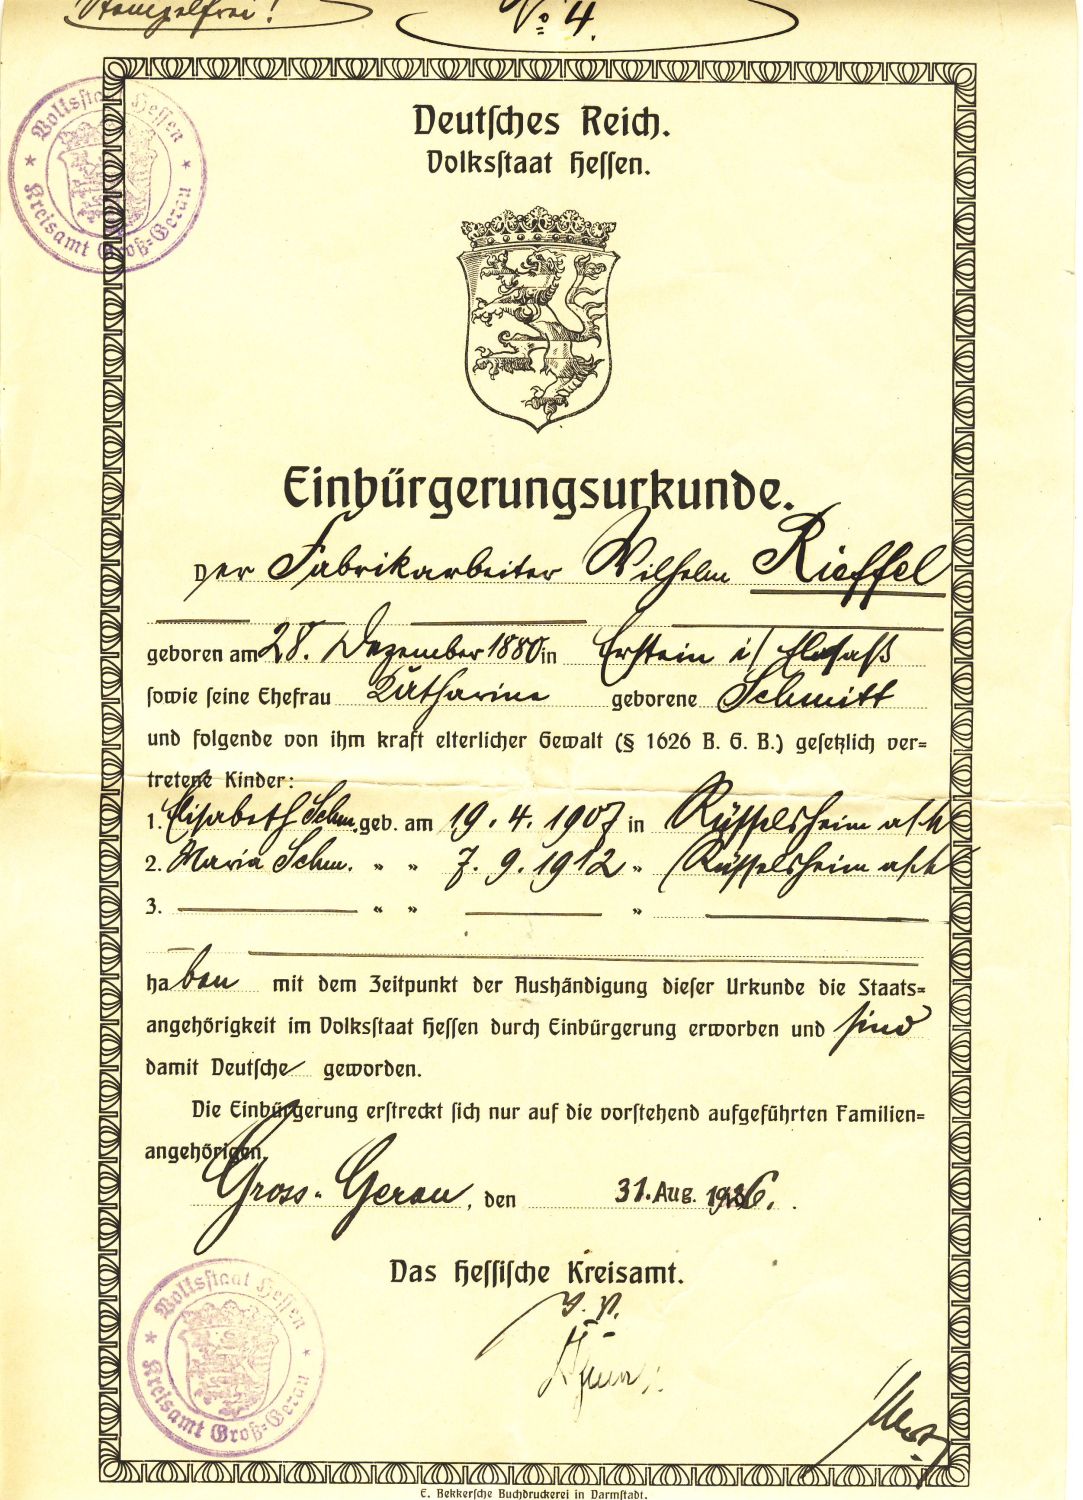 Stempelfrei!
No 4.
Volksstaat Hessen
Kreisamt Groß-Gerau
Deutsches Reich.
Volksstaat Hessen.
Einbürgerungsurkunde.
Der Fabrikarbeiter Wilhelm Rieffel
geboren am 28. Dezember 1880 in Erstein i/ Elsaß
sowie seine Ehefrau Katharine geborene Schmitt
und folgende von ihm kraft elterlicher Gewalt (§ 1626 B. G. B.) gesetzlich ver=
tretene Kinder:
1. Elisabeth Schm. geb. am 19. 4. 1907 in Rüsselsheim a/M
2. Maria Schm. " " 7. 9. 1912 " Rüsselsheim a/M
3. " " "
haben mit dem Zeitpunkt der Aushändigung dieser Urkunde die Staats=
angehörigkeit im Volksstaat Hessen durch Einbürgerung erworben und sind
damit Deutsche geworden.
Die Einbürgerung erstreckt sich nur auf die vorstehend aufgeführten Familien=
angehörigen.
Gross-Gerau, den 31. Aug. 1926.
Das Hessische Kreisamt.
J. V.
Volksstaat Hessen
Kreisamt Groß-Gerau
E. Bekkersche Buchdruckerei in Darmstadt.